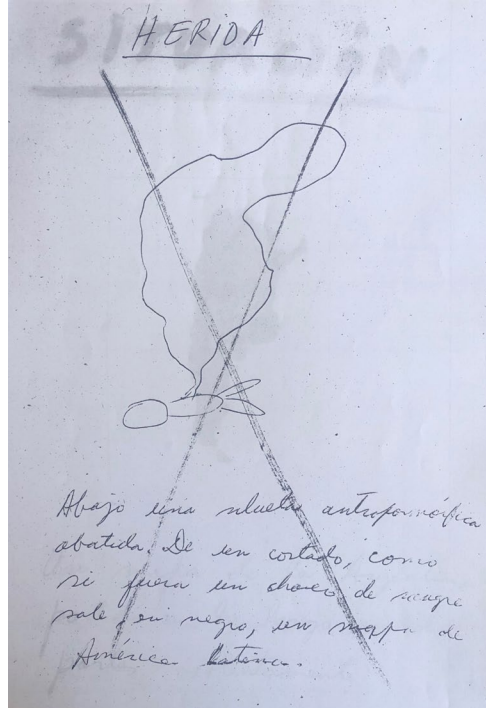 HERIDA
Abajo una silueta antropomórfica
abatida. De un costado, como
si fuera un chorro de sangre
sale, en negro, un mapa de
América Latina.